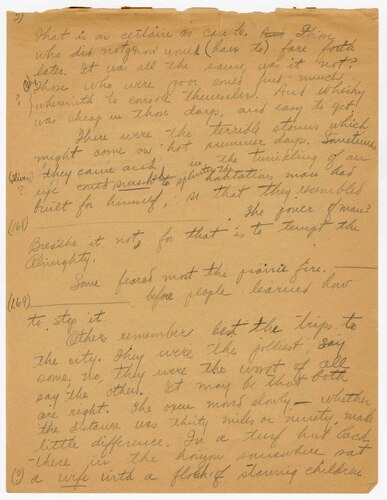 2)
That is as certain as can be. And Those
who did not grow would (have to) fare forth
later. It was all the same, was it not?
Those who were poor could find much
? wherewith to console themselves. And whisky
was cheap in those days, and easy to get.
There were the terrible storms which
might come on hot summer days. Sometimes
they came and, in the twinkling of an
? eye could smash to splinters the habitations man had
built for himself, so that they resembled
(168) The power of man?
Breathe it not, for that is to tempt the
Almighty.
Some feared most the prairie fire.
(169) before people learned how
to stop it.
Others remember best the trips to
the city. They were the jolliest, say
some. No, they were the worst of all
say the others. It may be that both
are right. The oxen moved slowly – whether
the distance was thirty miles or ninety, made
little difference. In a turf hut back
there in the horizon somewhere sat
(3) a wife with a flock of starving children